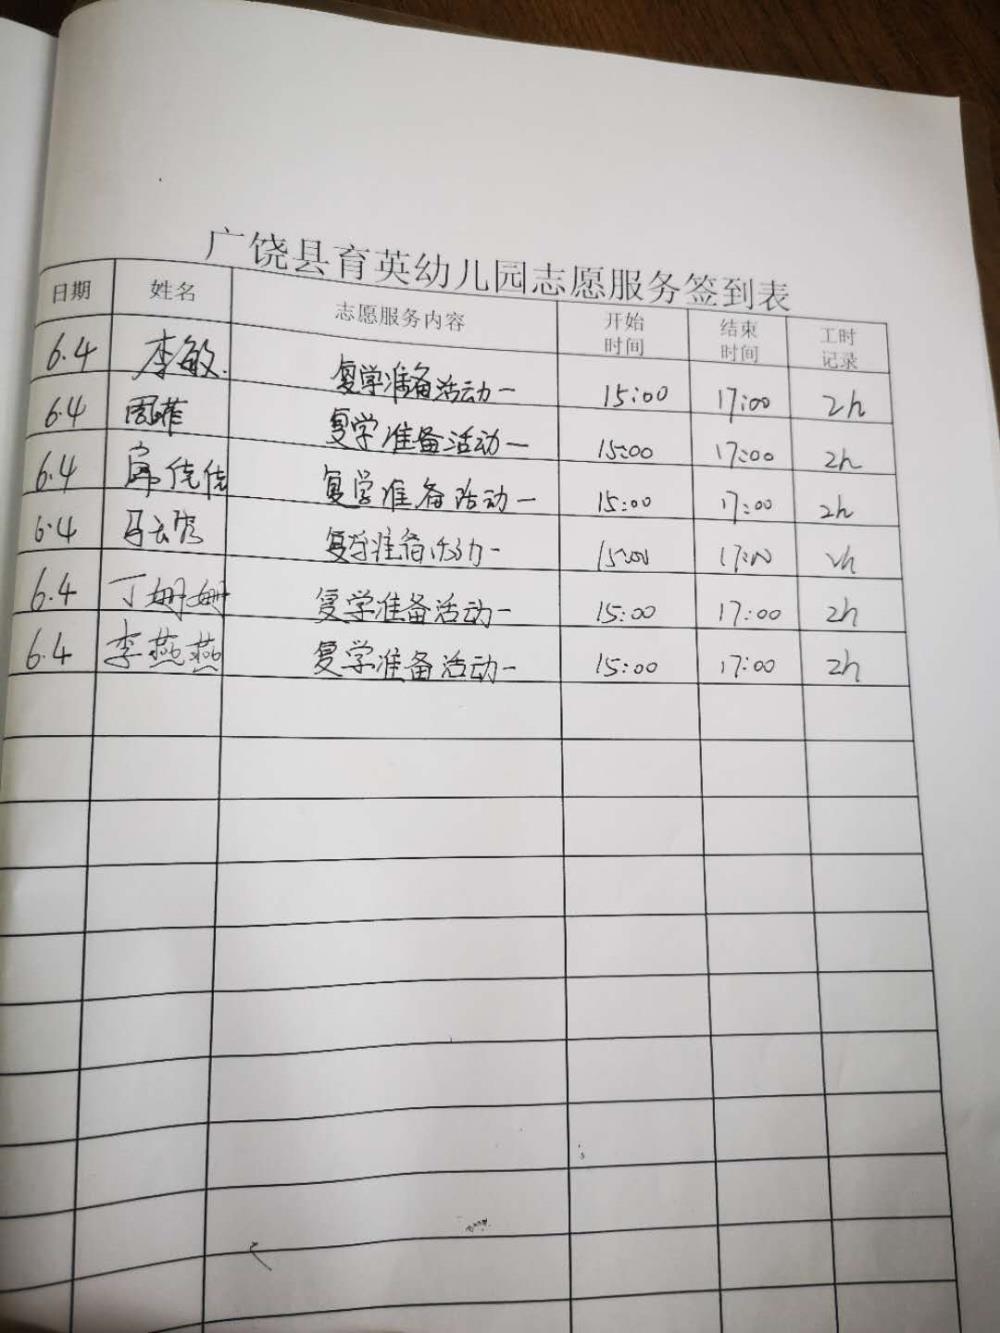 广饶县育英幼儿园志愿服务签到表
日期 姓名 志愿服务内容 开始时间 结束时间 工时记录
6.4 李敏 复学准备活动一 15:00 17:00 2h
6.4 周菲 复学准备活动一 15:00 17:00 2h
6.4 佳佳 复学准备活动一 15:00 17:00 2h
6.4 马 复学准备活动一 15:00 17:00 2h
6.4 丁姗姗 复学准备活动一 15:00 17:00 2h
6.4 李燕燕 复学准备活动一 15:00 17:00 2h